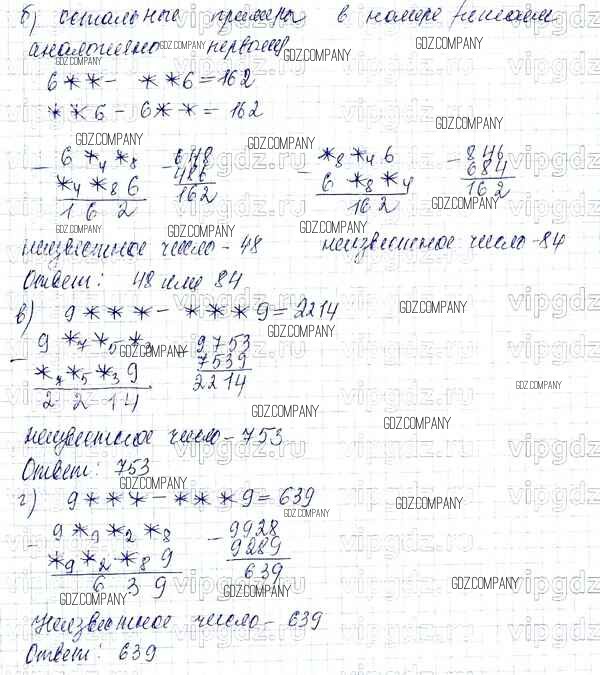 б) остальные примеры в номере решаем
аналогично первому
6** - **6 = 162
**6 - 6** = 162
- 6 *4 *8 - 648 - *8 *4 6 - 846
*4 *8 6 486 6 *8 *4 684
1 6 2 162 162 162
неизвестное число - 48 неизвестное число - 84
Ответ: 48 или 84
в) 9*** - ***9 = 2214
- 9 *7 *5 *3 - 9753
*7 *5 *3 9 7539
2 2 1 4 2214
неизвестное число - 753
Ответ: 753
г) 9*** - ***9 = 639
- 9 *9 *2 *8 - 9928
*9 *2 *8 9 9289
6 3 9 639
Неизвестное число - 639
Ответ: 639
GDZ.COMPANY
vipgdz.ru